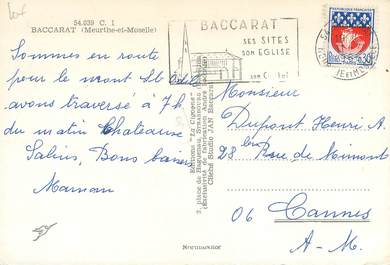 54.039 C. I
BACCARAT (Meurthe-et-Moselle)
BACCARAT
SES SITES
SON EGLISE
SON
REPUBLIQUE FRANÇAISE
0,30
Sommes en route
pour le mont Ste Odile
avons traversé à 7h
du matin Chateau
Salins, Bons baisers
Maman
Editions "La Cigogne"
7, place de Haguenau, Strasbourg
Cliché Studio JAN Baccarat
Monsieur
Dupont Henri A.
98 bis Rue de Mimont
06 Cannes
A-M.